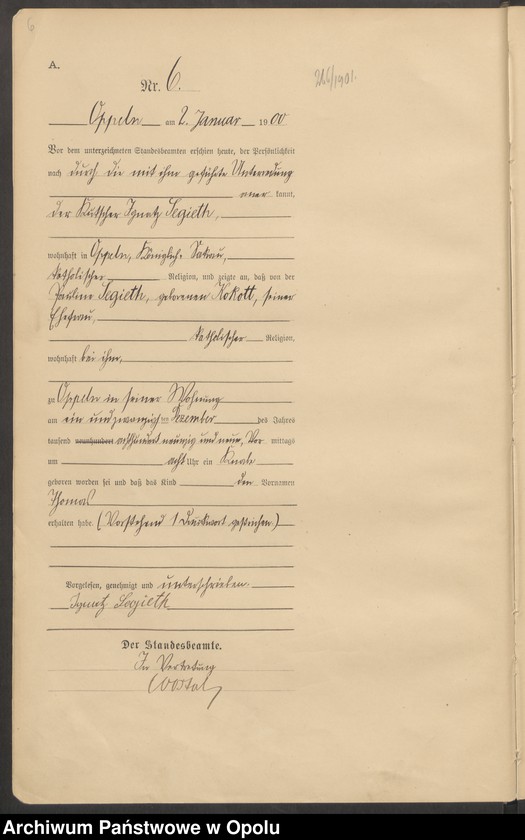 6
A.
Nr. 6.
216/1901.
Oppeln am 2. Januar 1900
Vor dem unterzeichneten Standesbeamten erschien heute, der Persönlichkeit
nach durch die mit ihm geführte Unterredung
aner kannt,
der Kutscher Ignatz Segieth,
wohnhaft in Oppeln, Königlich-Sakrau,
katholischer Religion, und zeigte an, daß von der
Pauline Segieth, geborenen Kokott, seiner
Ehefrau,
katholischer Religion,
wohnhaft bei ihm,
zu Oppeln in seiner Wohnung
am ein und zwanzigsten Dezember des Jahres
tausend neunhundert achthundert neunzig und neun, Vor mittags
um acht Uhr ein Knabe
geboren worden sei und daß das Kind den Vornamen
Thomas
erhalten habe. (Vorstehend 1 Druckwort gestrichen.)
Vorgelesen, genehmigt und unterschrieben.
Ignatz Segieth
Der Standesbeamte.
In Vertretung
Archiwum Państwowe w Opolu